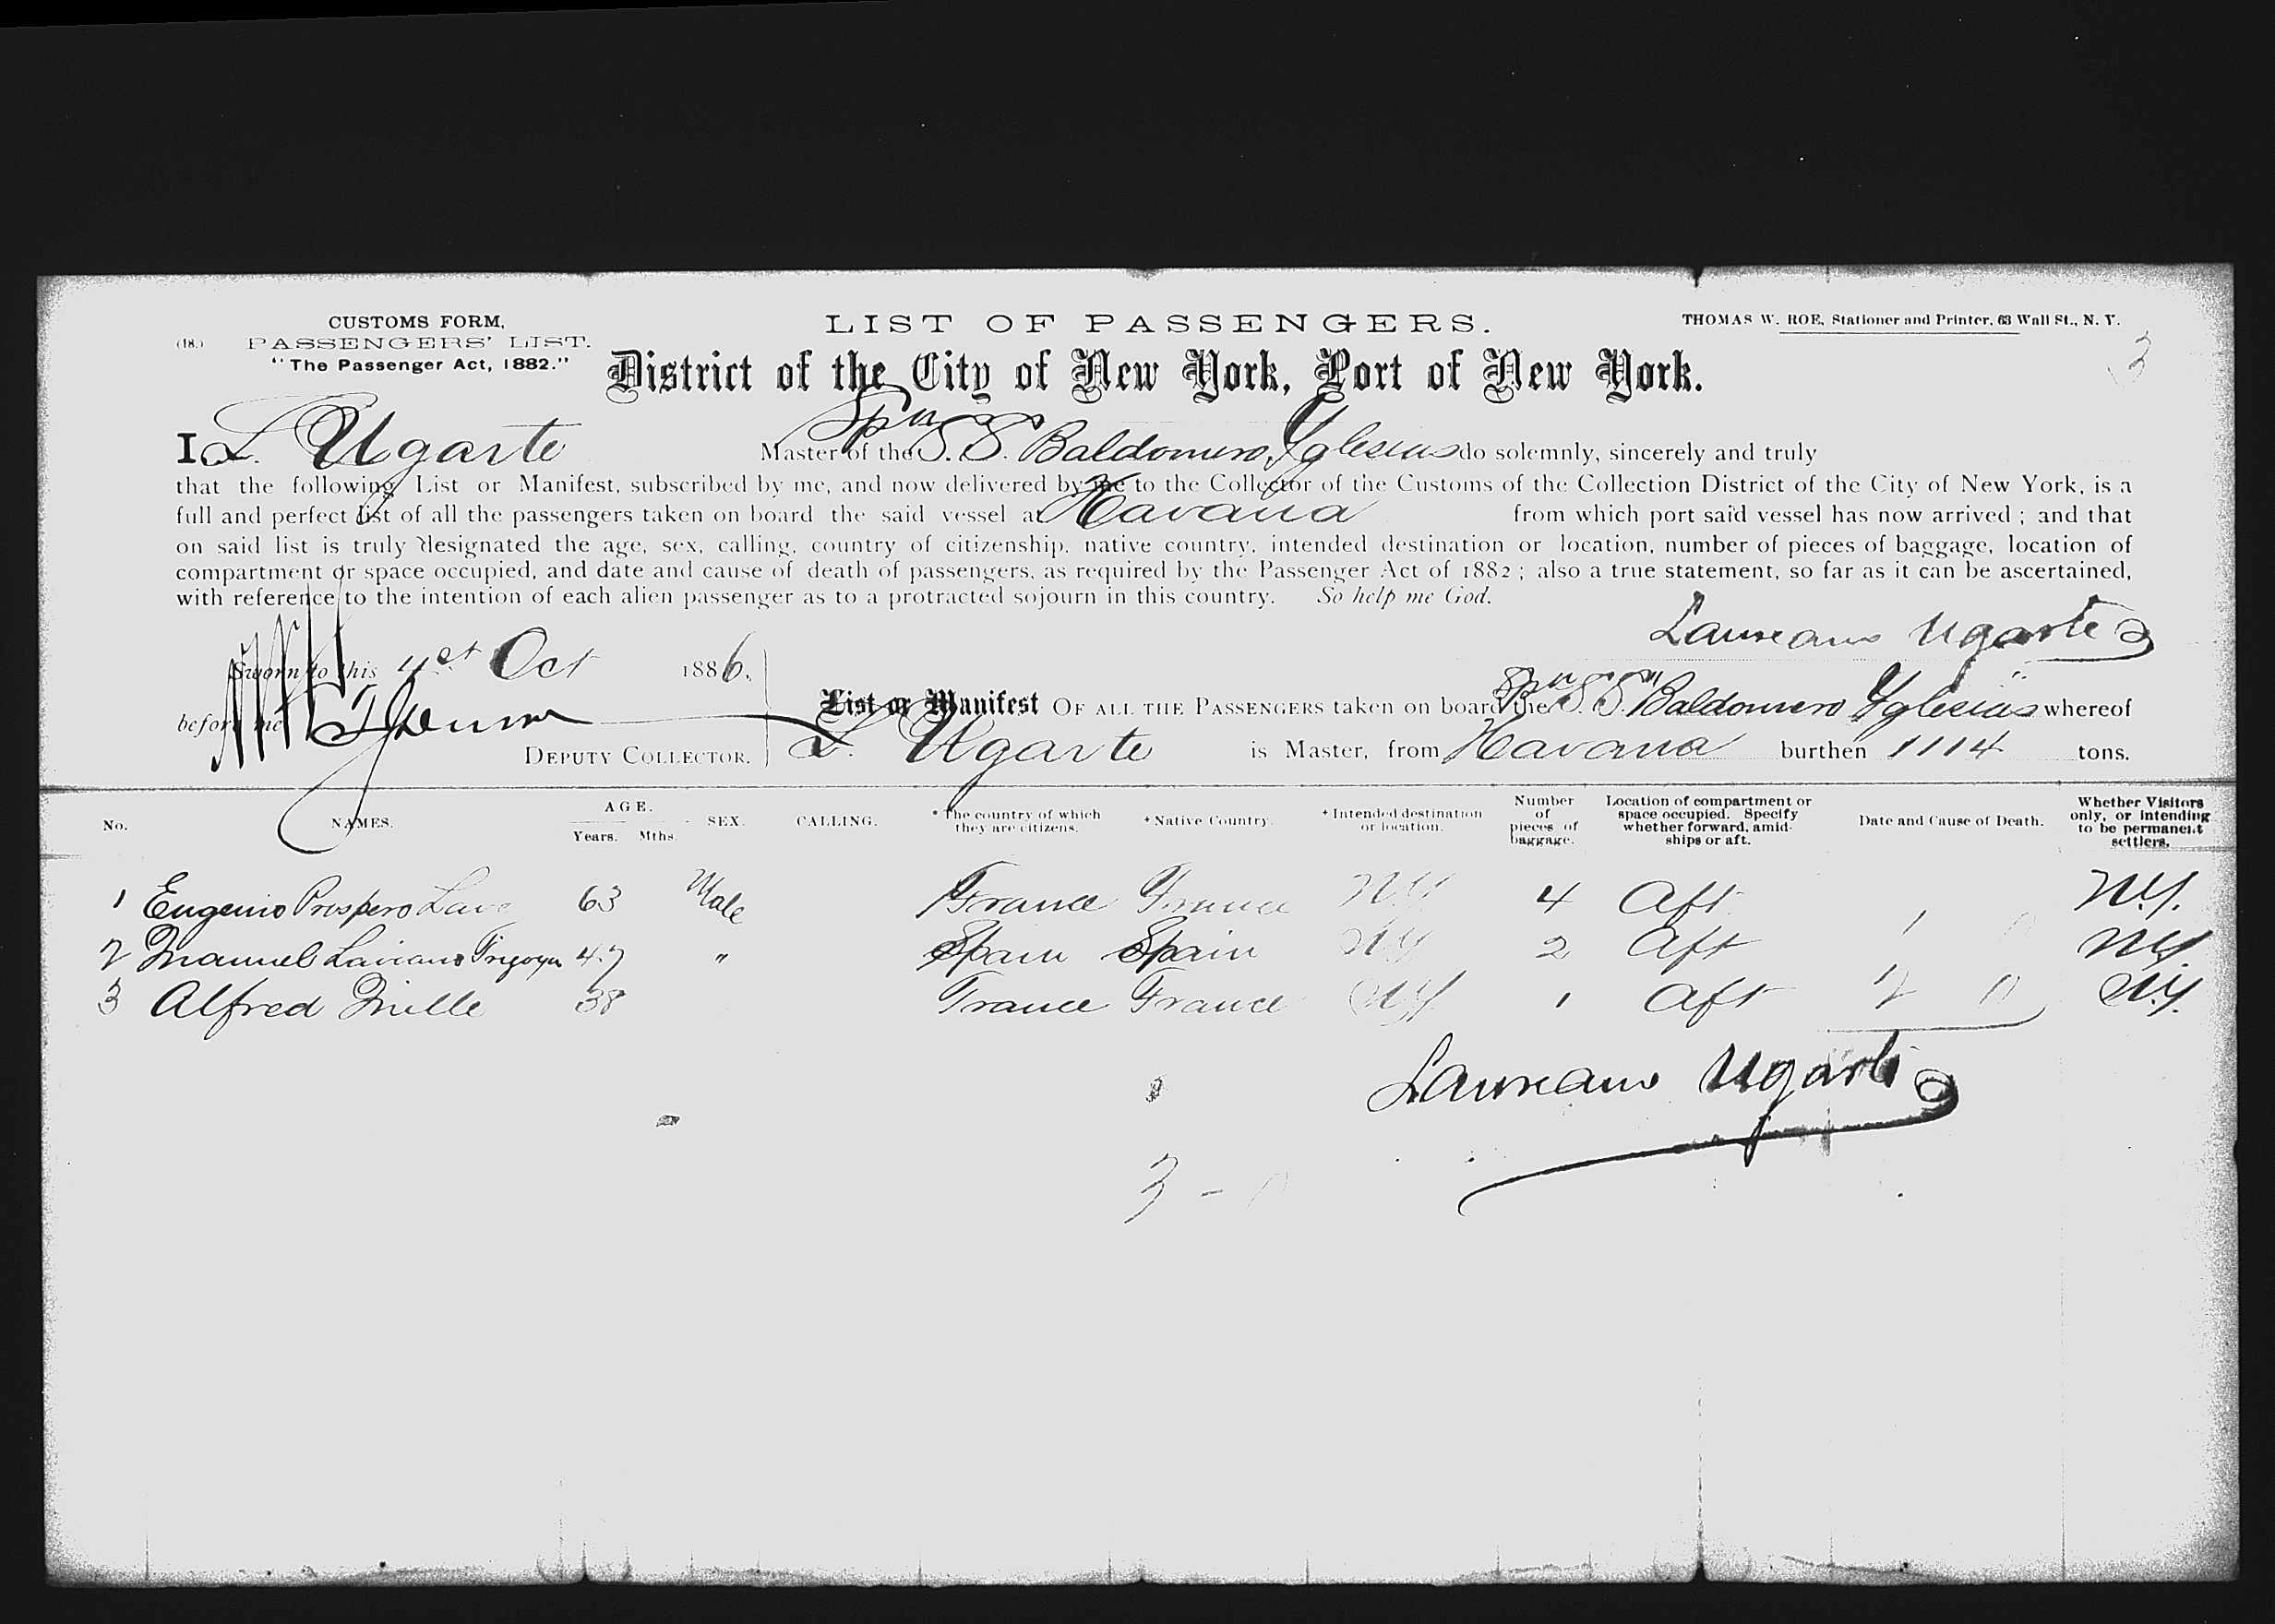 CUSTOMS FORM,
(18.) PASSENGERS' LIST.
"The Passenger Act, 1882."
LIST OF PASSENGERS.
THOMAS W. ROE, Stationer and Printer, 63 Wall St., N. Y.
District of the City of New York, Port of New York.
I L. Ugarte Master of the Span S.S. Baldomero Yglesias do solemnly, sincerely and truly
that the following List or Manifest, subscribed by me, and now delivered by me to the Collector of the Customs of the Collection District of the City of New York, is a
full and perfect list of all the passengers taken on board the said vessel at Havana from which port said vessel has now arrived; and that
on said list is truly designated the age, sex, calling, country of citizenship, native country, intended destination or location, number of pieces of baggage, location of
compartment or space occupied, and date and cause of death of passengers, as required by the Passenger Act of 1882; also a true statement, so far as it can be ascertained,
with reference to the intention of each alien passenger as to a protracted sojourn in this country. So help me God.
Laureano Ugarte
Sworn to this Oct 1886.
before me
DEPUTY COLLECTOR.
List or Manifest OF ALL THE PASSENGERS taken on board the Span S.S. "Baldomero Yglesias whereof
L. Ugarte is Master, from Havana burthen 1114 tons.
No. NAMES. AGE. Years. Mths. SEX. CALLING. * The country of which they are citizens. * Native Country. * Intended destination or location. Number of pieces of baggage. Location of compartment or space occupied. Specify whether forward, amid-ships or aft. Date and Cause of Death. Whether Visitors only, or intending to be permanent settlers.
1 Eugenio Prospero 63 Male France France N.Y. 4 Aft N.Y.
2 Manuel Laviano 47 " Spain Spain N.Y. 2 Aft N.Y.
3 Alfred Mille 38 France France N.Y. 1 Aft N.Y.
Laureano Ugarte
3 -